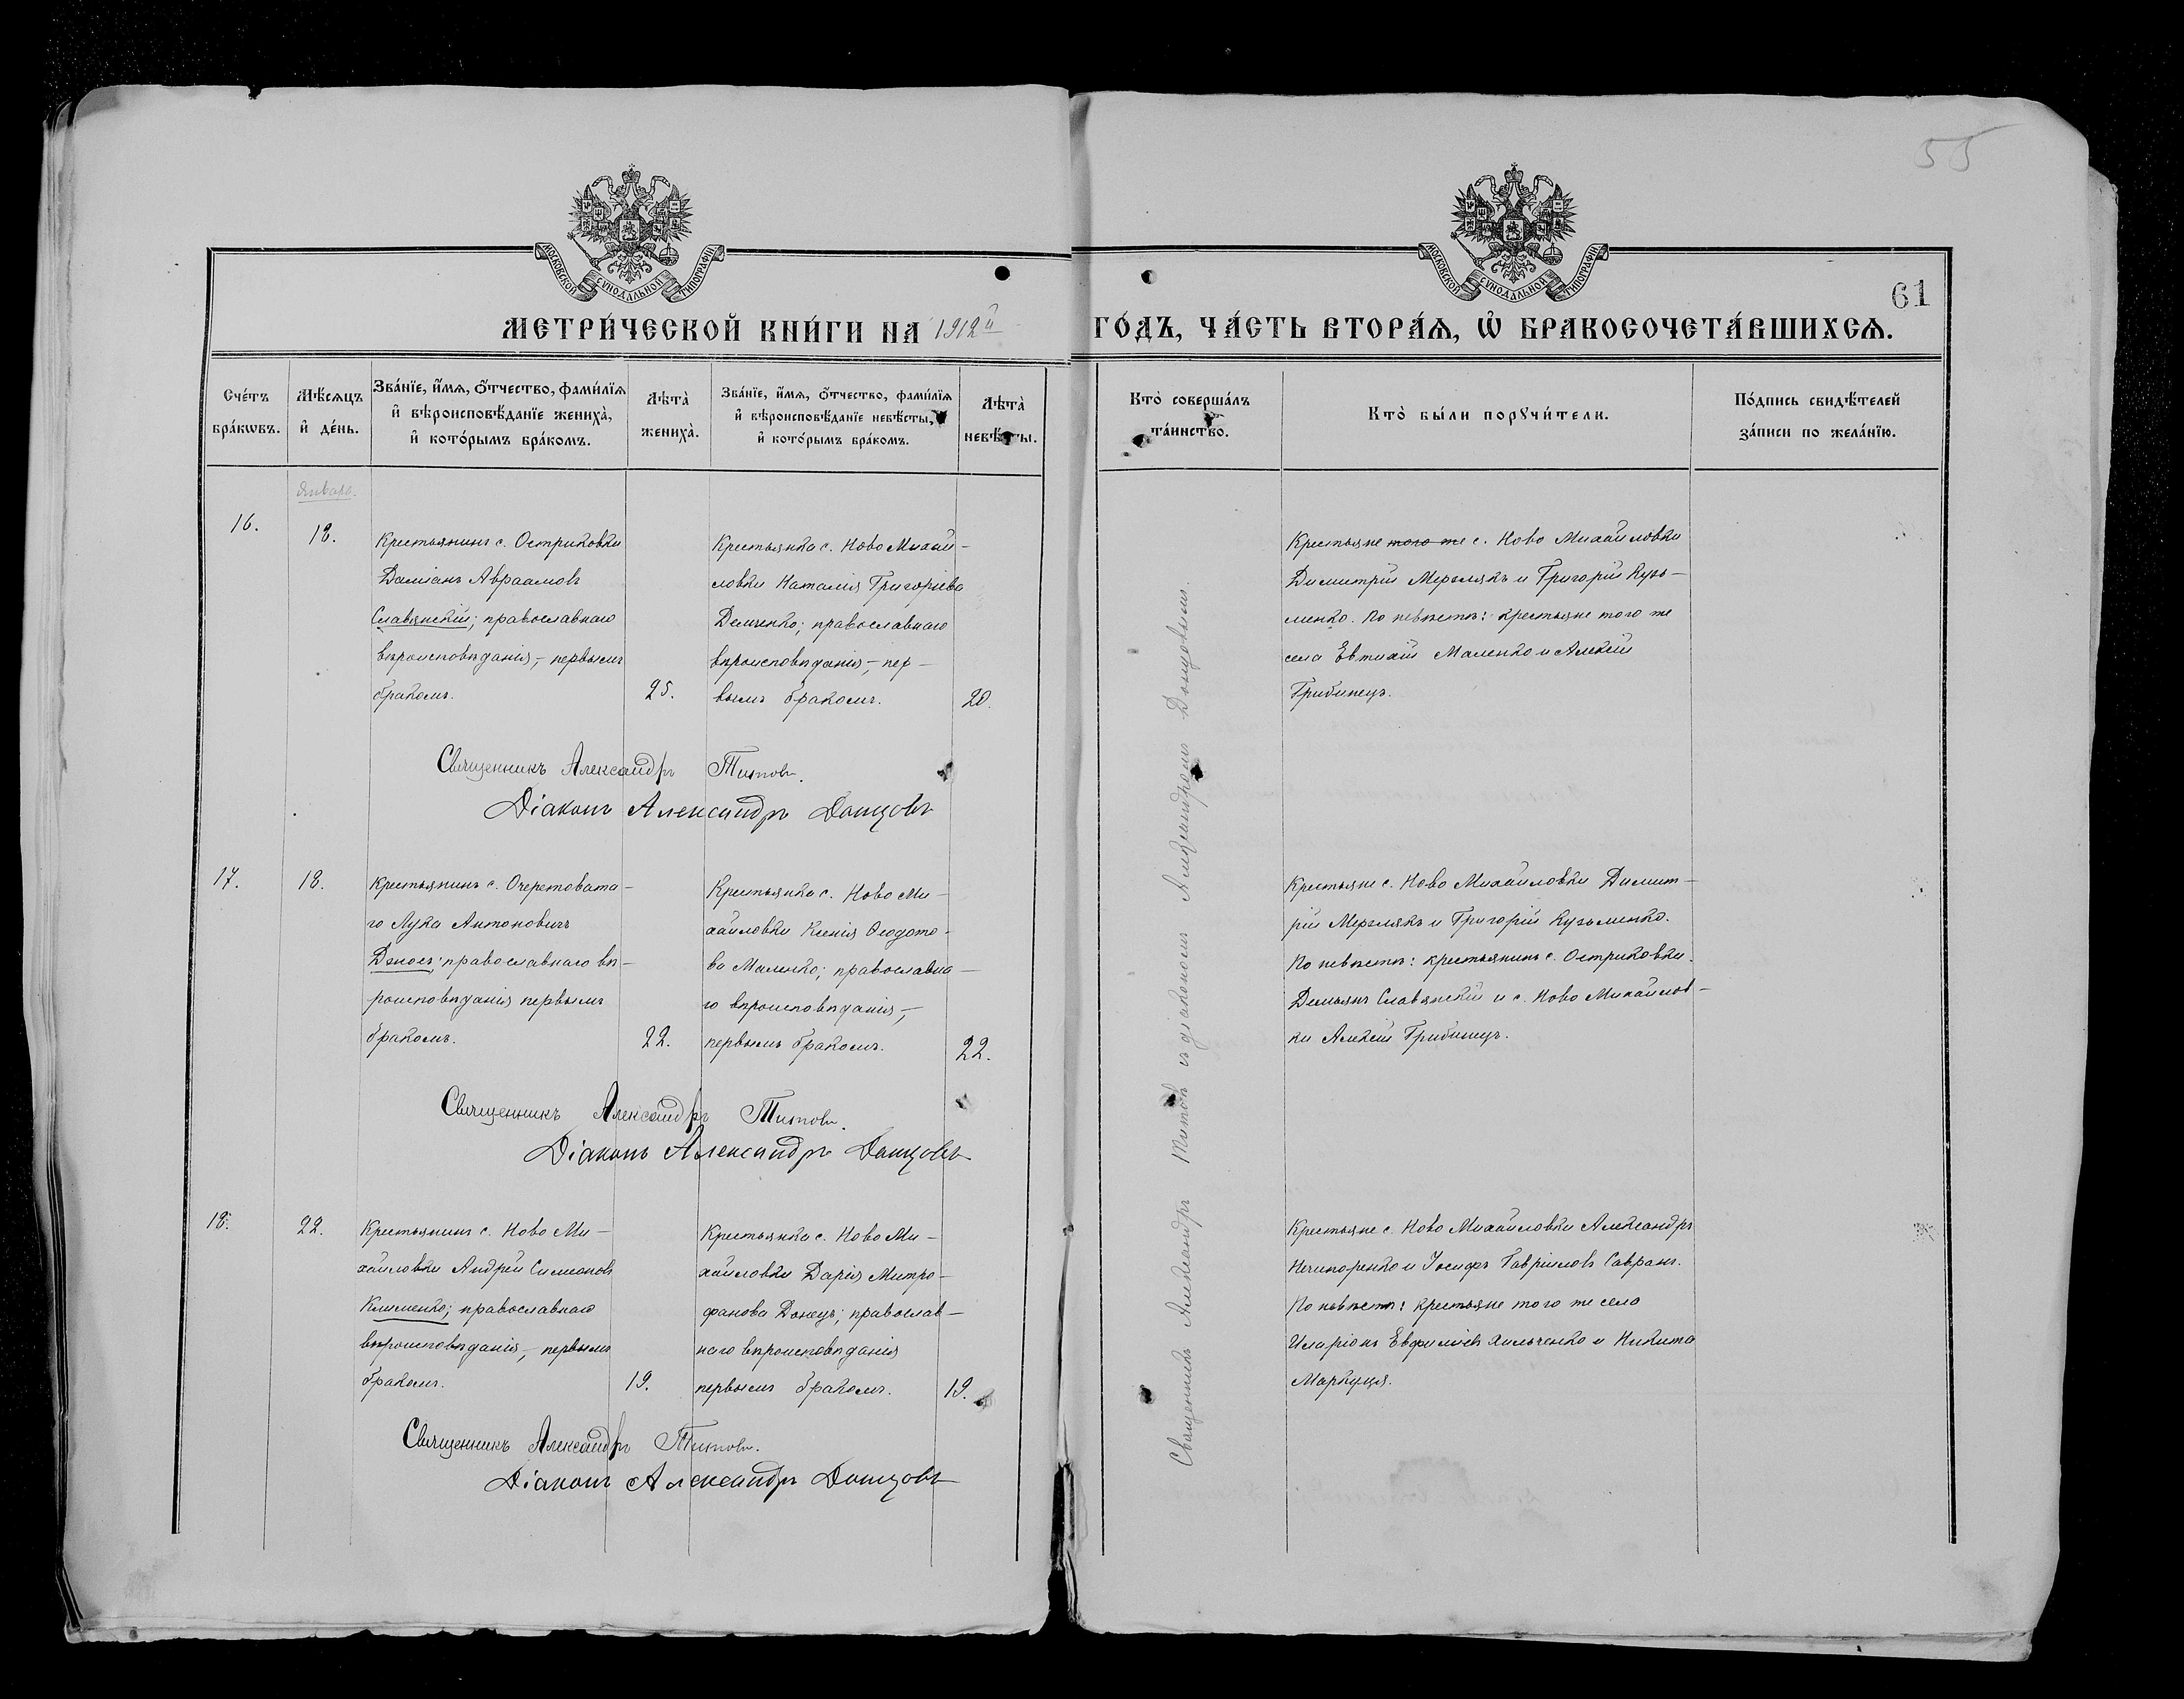 55
61
МОСКОВСКОЙ СѴНОДАЛЬНОЙ ТИПОГРАФІИ
МОСКОВСКОЙ СѴНОДАЛЬНОЙ ТИПОГРАФІИ
МЕТРИ́ЧЕСКОЙ КНИ́ГИ НА 1912й ГО́ДЪ, ЧА́СТЬ ВТОРА́Ѧ, Ѡ҆ БРАКОСОЧЕТА́ВШИХСѦ.
Сче́тъ
бра́кѡвъ.
Мѣ́сѧцъ
и҆ де́нь.
Зва́нїе, и҆́мѧ, ѻ҆́тчество, фами́лїѧ
и҆ вѣроисповѣ́данїе жениха̀,
и҆ кото́рымъ бра́комъ.
Лѣта̀
жениха̀.
Зва́нїе, и҆́мѧ, ѻ҆́тчество, фами́лїѧ
и҆ вѣроисповѣ́данїе невѣ́сты,
и҆ кото́рымъ бра́комъ.
Лѣта̀
невѣ́сты.
Кто̀ соверша́лъ
та́инство.
Кто̀ бы́ли порꙋчи́тели.
По́дпись свидѣ́телей
за́писи по жела́нїю.
Январь.
16.
18.
Крестьянинъ с. Остриковки
Даміанъ Авраамовъ
Славянскій; православнаго
вѣроисповѣданія, – первымъ
бракомъ.
25.
Крестьянка с. Ново Михай-
ловки Наталія Григоріева
Демченко; православнаго
вѣроисповѣданія, – пер-
вымъ бракомъ.
20.
Крестьяне того же с. Ново Михайловки
Димитрій Мерзлякъ и Григорій Кузь-
менко. По невѣстѣ: крестьяне того же
села Евтихій Маленко и Алексій
Грибинецъ.
Священникъ Александръ Титовъ.
Діаконъ Александръ Донцовъ
17.
18.
Крестьянинъ с. Очеретовата-
го Лука Антоновичъ
православнаго вѣ-
роисповѣданія первымъ
бракомъ.
22.
Крестьянка с. Ново Ми-
хайловки Ксенія Ѳеодото-
ва Маленко; православна-
го вѣроисповѣданія, –
первымъ бракомъ.
22.
Крестьяне с. Ново Михайловки Димит-
рій Мерзлякъ и Григорій Кузьменко.
По невѣстѣ: крестьянинъ с. Остриковки
Демьянъ Славянскій и с. Ново Михайлов-
ки Алексій Грибинецъ.
Священникъ Александръ Титовъ.
Діаконъ Александръ Донцовъ
18.
22.
Крестьянинъ с. Ново Ми-
хайловки Андрей Симеоновъ
Клименко; православнаго
вѣроисповѣданія, – первымъ
бракомъ.
19.
Крестьянка с. Ново Ми-
хайловки Дарія Митро-
фанова Донецъ; православ-
наго вѣроисповѣданія
первымъ бракомъ.
19.
Крестьяне с. Ново Михайловки Александръ
Нечипоренко и Іосифъ Гавріиловъ Савранъ.
По невѣстѣ: крестьяне того же села
Иларіонъ Евфиміевъ Хильченко и Никита
Маркуця.
Священникъ Александръ Титовъ.
Діаконъ Александръ Донцовъ
Священникъ Александръ Титовъ съ діакономъ Александромъ Донцовымъ.